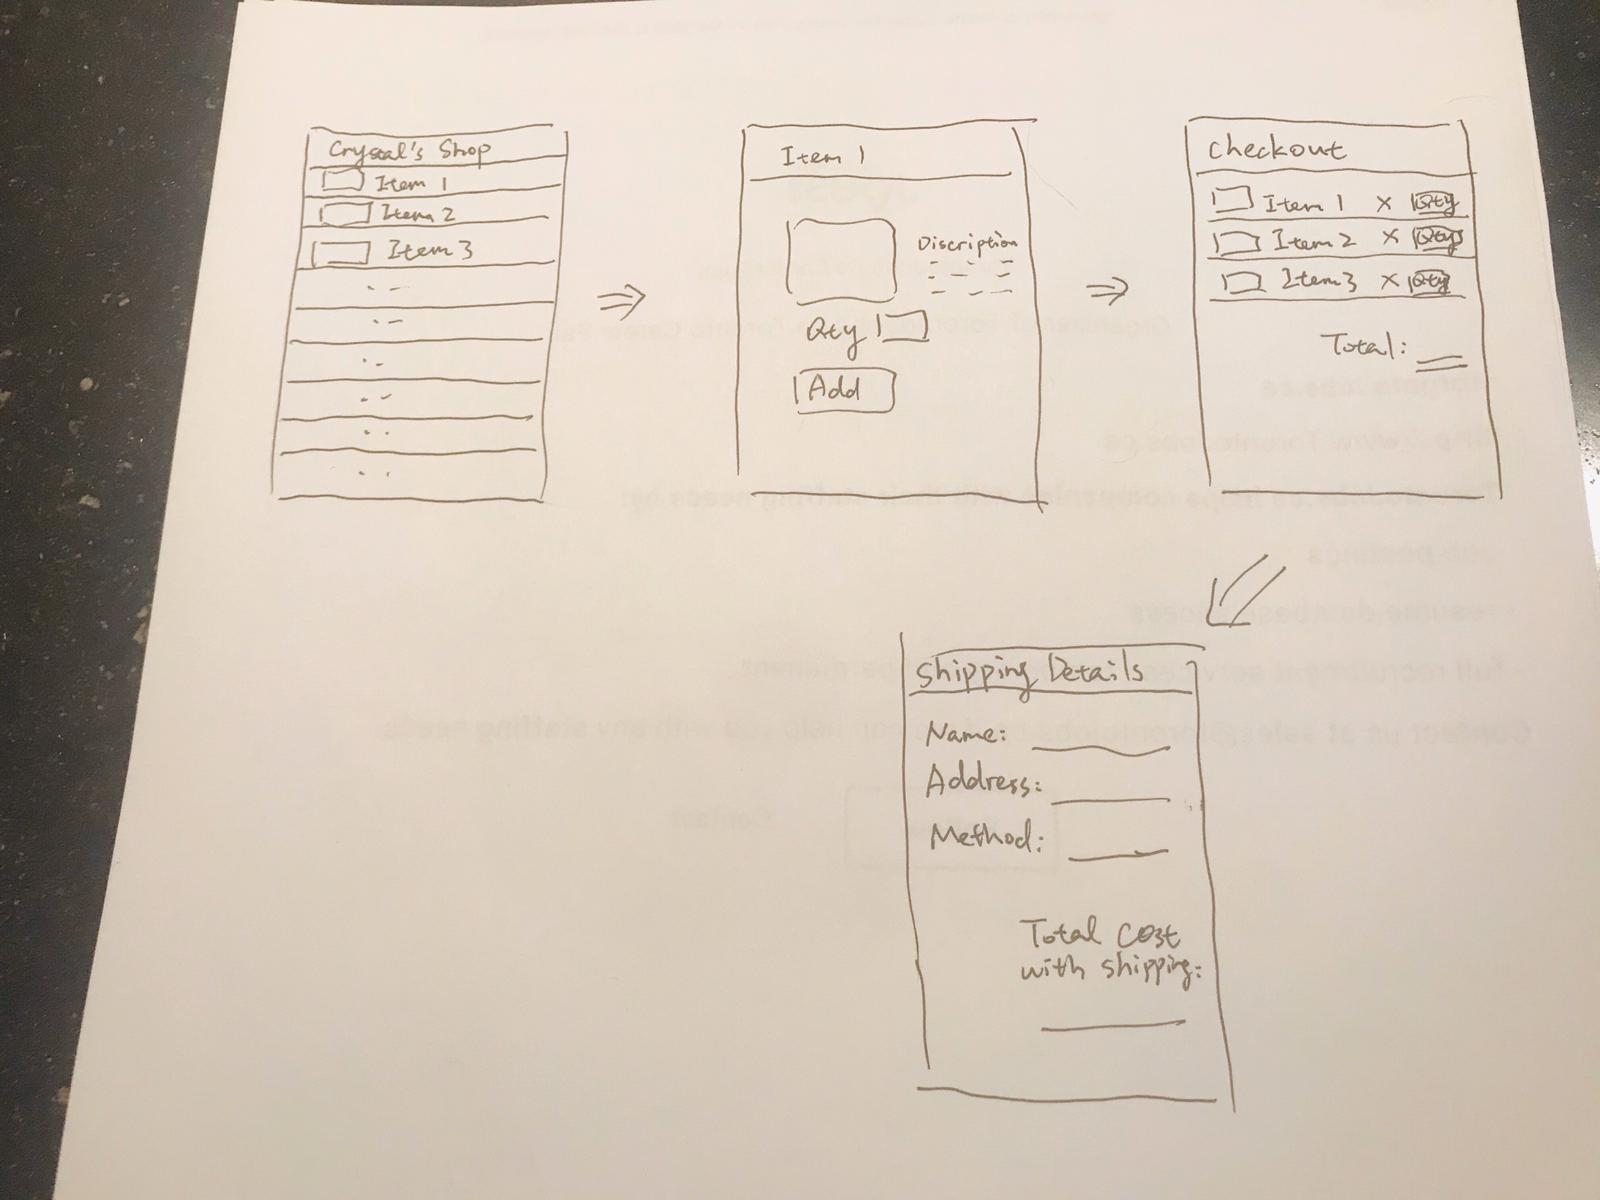 Crystal's Shop
Item 1
Item 2
Item 3
Item 1
Discription
Qty
Add
Checkout
Item 1 x Qty
Item 2 x Qty
Item 3 x Qty
Total:
Shipping Details
Name:
Address:
Method:
Total cost
with shipping: